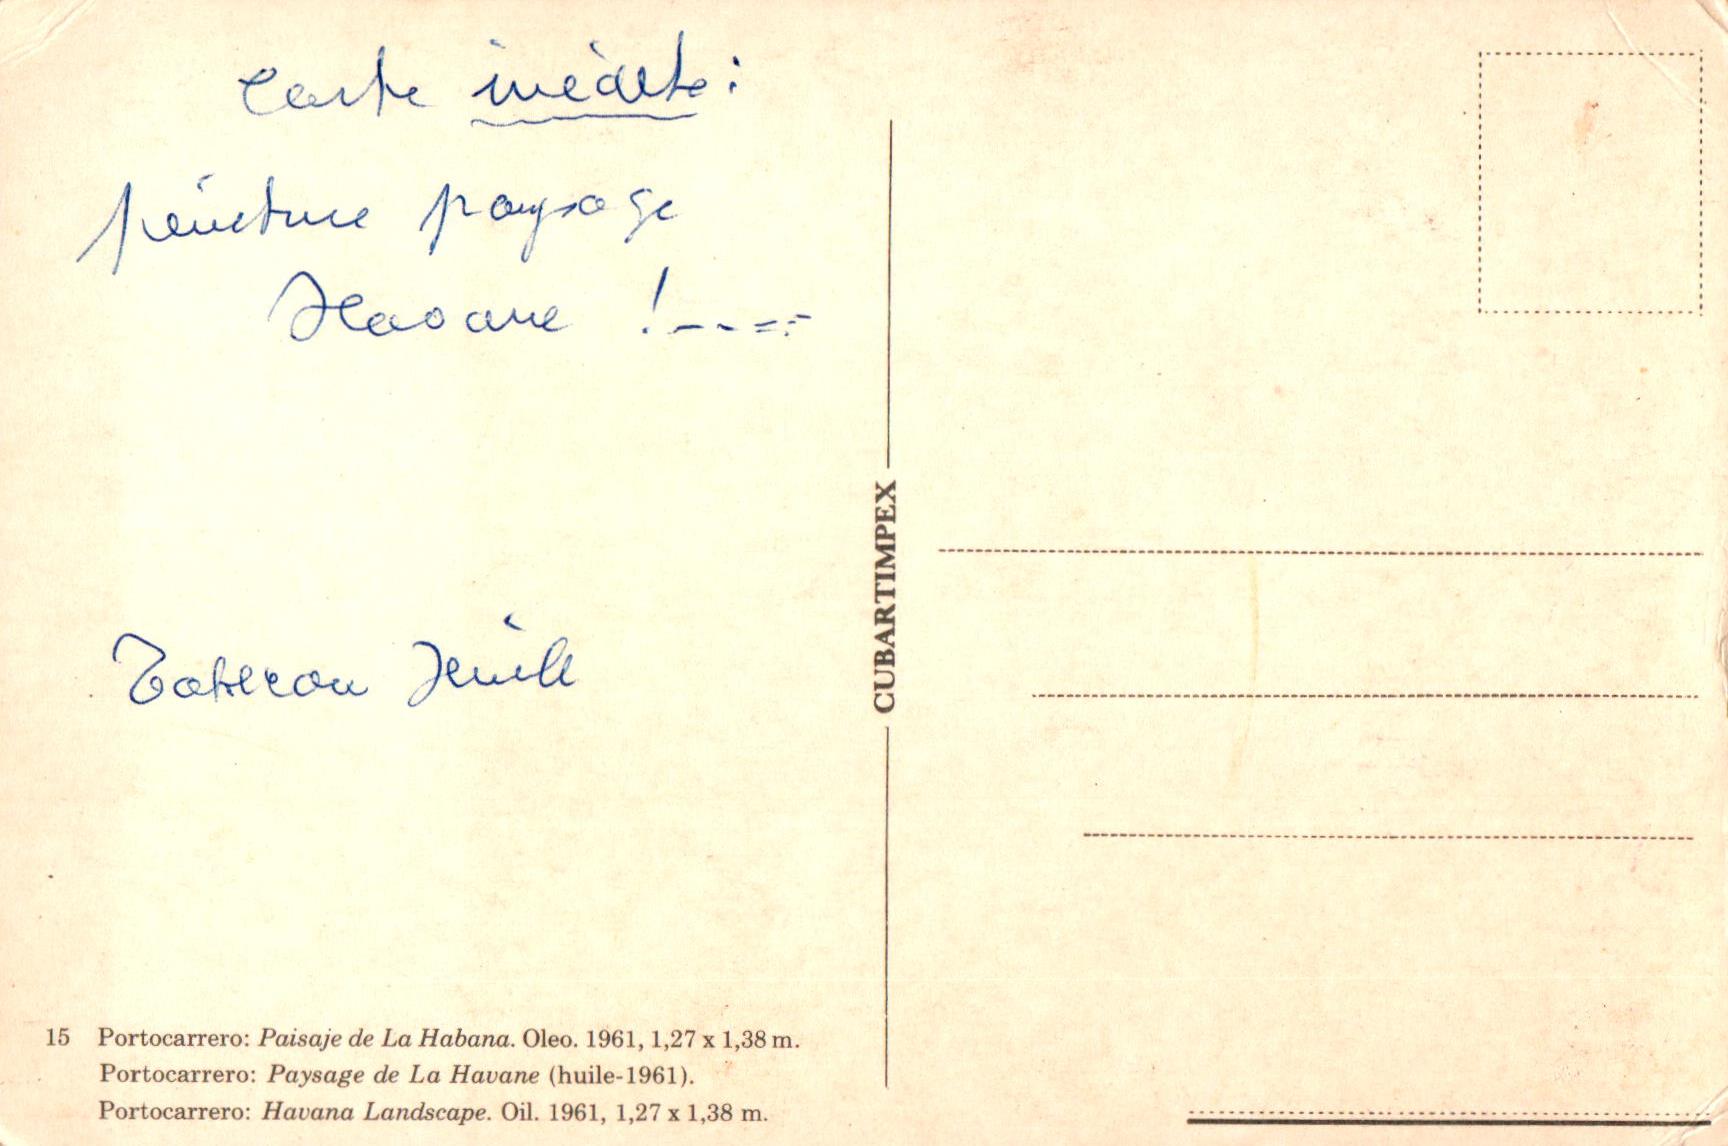 Carte inédite :
peinture paysage
Havane ! - - - - -
Tableau Huile
CUBARTIMPEX
15 Portocarrero: Paisaje de La Habana. Oleo. 1961, 1,27 x 1,38 m.
Portocarrero: Paysage de La Havane (huile-1961).
Portocarrero: Havana Landscape. Oil. 1961, 1,27 x 1,38 m.